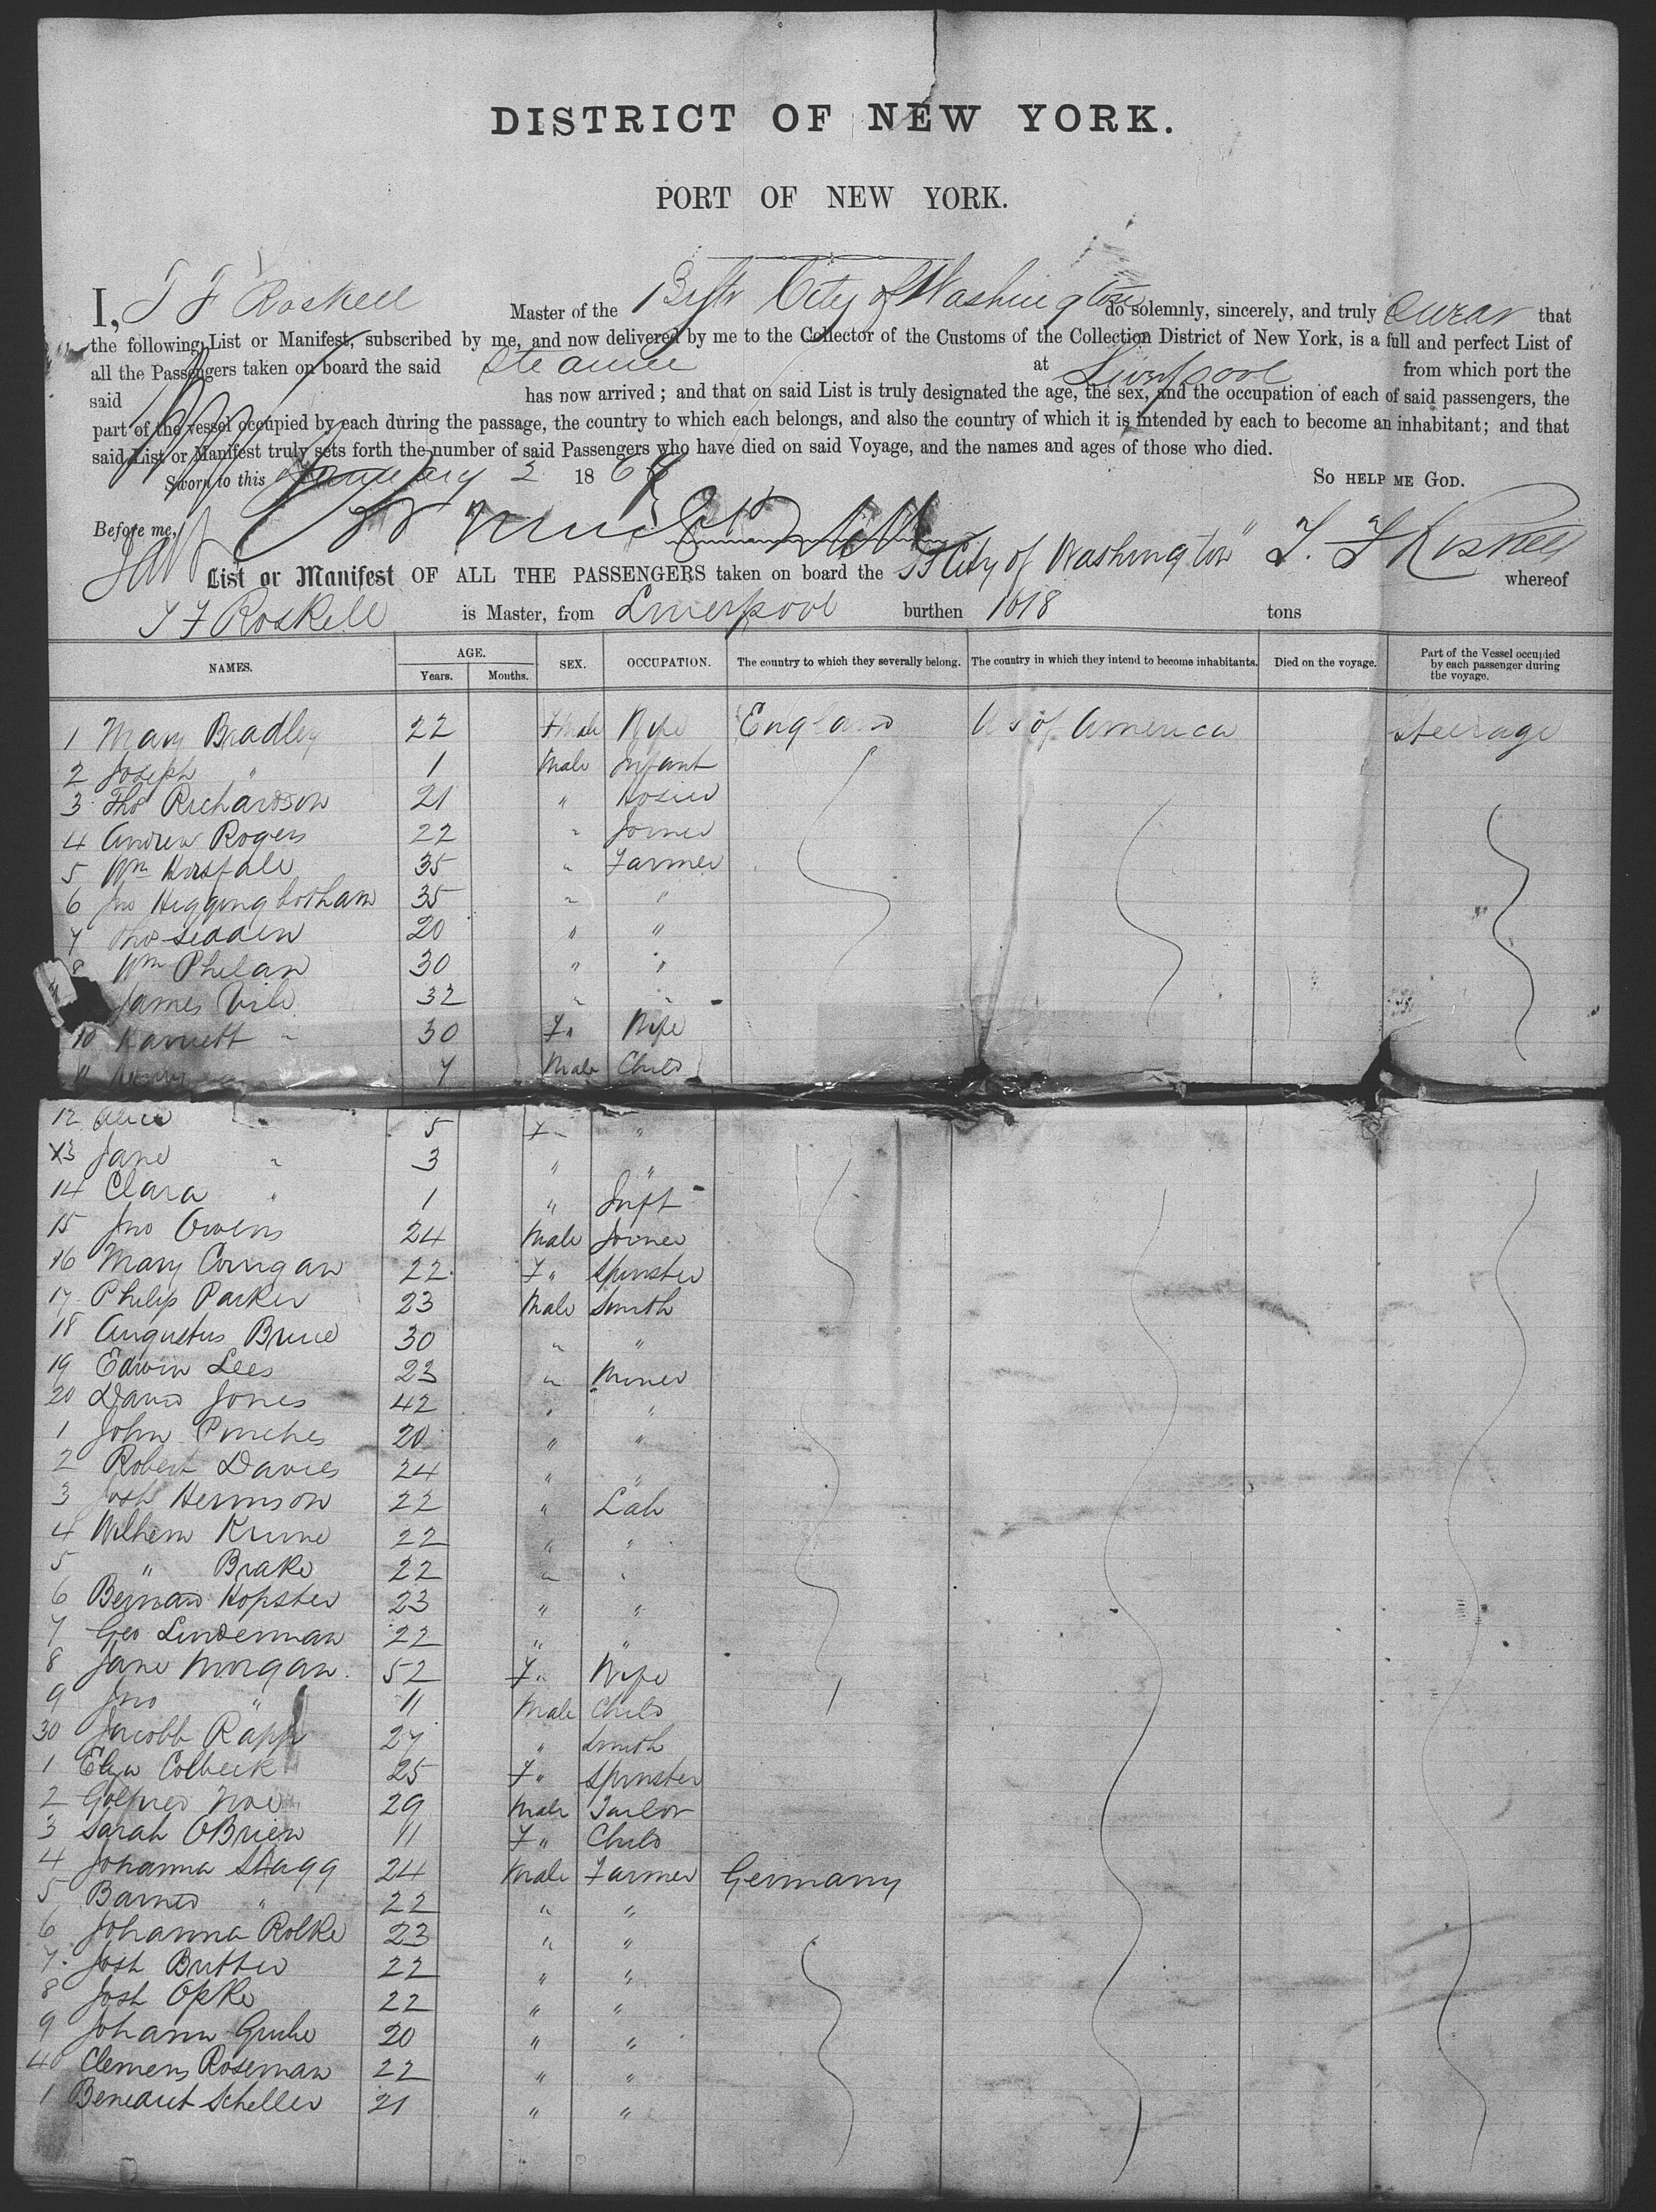 DISTRICT OF NEW YORK.
PORT OF NEW YORK.
I, T F Roskell Master of the Br Str City of Washington do solemnly, sincerely, and truly swear that
the following List or Manifest, subscribed by me, and now delivered by me to the Collector of the Customs of the Collection District of New York, is a full and perfect List of
all the Passengers taken on board the said Steamer at Liverpool from which port the
said has now arrived; and that on said List is truly designated the age, the sex, and the occupation of each of said passengers, the
part of the vessel occupied by each during the passage, the country to which each belongs, and also the country of which it is intended by each to become an inhabitant; and that
said List or Manifest truly sets forth the number of said Passengers who have died on said Voyage, and the names and ages of those who died.
Sworn to this January 2 186 SO HELP ME GOD.
Before me, T. F Roskell
List or Manifest OF ALL THE PASSENGERS taken on board the SS City of Washington" whereof
T F Roskell is Master, from Liverpool burthen 1618 tons
NAMES. AGE. Years. Months. SEX. OCCUPATION. The country to which they severally belong. The country in which they intend to become inhabitants. Died on the voyage. Part of the Vessel occupied by each passenger during the voyage.
1 Mary Bradley 22 Fmale Wife England U S of America Steerage
2 Joseph " 1 Male Infant
3 Thos Richardson 21 " Hosier
4 Andrew Rogers 22 " Joiner
5 Wm Horsfall 35 " Farmer
6 Jno Higginbotham 35 " "
7 Thos Seddon 20 " "
8 Wm Phelan 30 " "
James 32 " "
10 Harriett " 30 F" Wife
11 7 Male Child
12 Alice " 5 F " "
13 Jane " 3 " "
14 Clara " 1 " Inft
15 Jno Owens 24 Male Joiner
16 Mary Corrigan 22 F " Spinster
17 Philip Parker 23 Male Smith
18 Augustus Bruce 30 " "
19 Edwin Lees 23 " Miner
20 David Jones 42 " "
1 John Pinches 20 " "
2 Robert Davies 24 " "
3 Josh Hermson 22 " Lab
4 Wilhem Krume 22 " "
5 " Brake 22 " "
6 Bernard Hopster 23 " "
7 Geo Linderman 22 " "
8 Jane Morgan 52 F " Wife
9 Jno " 11 Male Child
30 Jacobb Rapp 27 " Smith
1 Eliza Colbeck 25 F " Spinster
2 29 Male Tailor
3 Sarah OBrien 11 F " Child
4 Johanna Stagg 24 Male Farmer Germany
5 " 22 " "
6 Johanna Rolke 23 " "
7 Josh Butter 22 " "
8 Josh Opke 22 " "
9 Johann Grube 20 " "
40 Clemens Roseman 22 " "
1 Benedict Scheller 21 " "